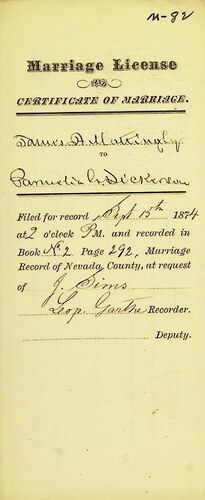 M-82
Marriage License
CERTIFICATE OF MARRIAGE.
James A. Mattingly
TO
Parmelia C. Dickerson
Filed for record, Sept. 15th 1874
at 2 o'clock P M. and recorded in
Book No. 2 Page 292, Marriage
Record of Nevada County, at request
of J. Sims
Leop. Garthe Recorder.
Deputy.